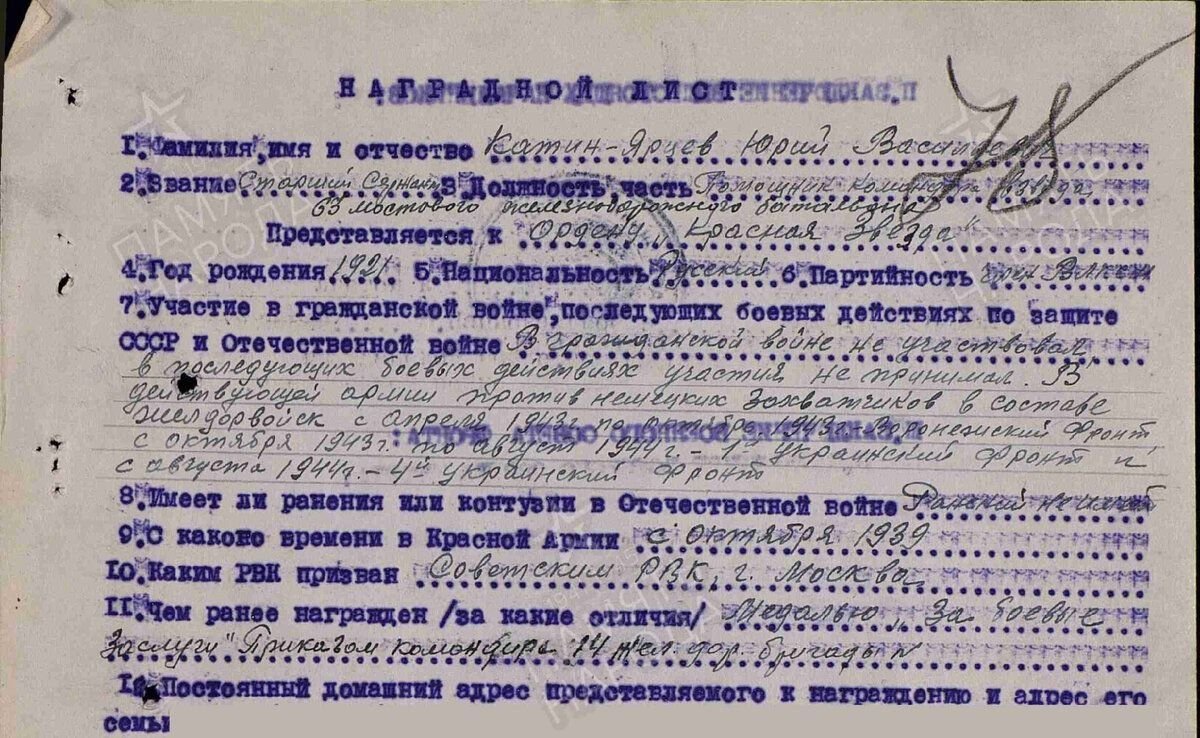 НАГРАДНОЙ ЛИСТ
78
1. Фамилия, имя и отчество Катин-Ярцев Юрий Васильевич
2. Звание Старший Сержант 3. Должность часть Помощник командира взвода
63 мостового железнодорожного баталиона
Представляется к Ордену "Красная Звезда"
4. Год рождения 1921 5. Национальность Русский 6. Партийность член ВЛКСМ
7. Участие в гражданской войне, последующих боевых действиях по защите
СССР и Отечественной войне В гражданской войне не участвовал,
в последующих боевых действиях участия не принимал. В
действующей армии против немецких захватчиков в составе
желдорвойск с апреля 1943г. по октябрь 1943г.-Воронежский Фронт
с октября 1943г. по август 1944г. - 1й Украинский Фронт и
с августа 1944г. - 4й Украинский Фронт
8. Имеет ли ранения или контузии в Отечественной войне Ранений не имеет
9. С каково времени в Красной Армии с октября 1939
10. Каким РВК призван Советским РВК, г. Москва
11. Чем ранее награжден /за какие отличия/ Медалью „За боевые
заслуги" Приказом командира 14 жел. дор. бригады №
12. Постоянный домашний адрес представляемого к награждению и адрес его
семьи